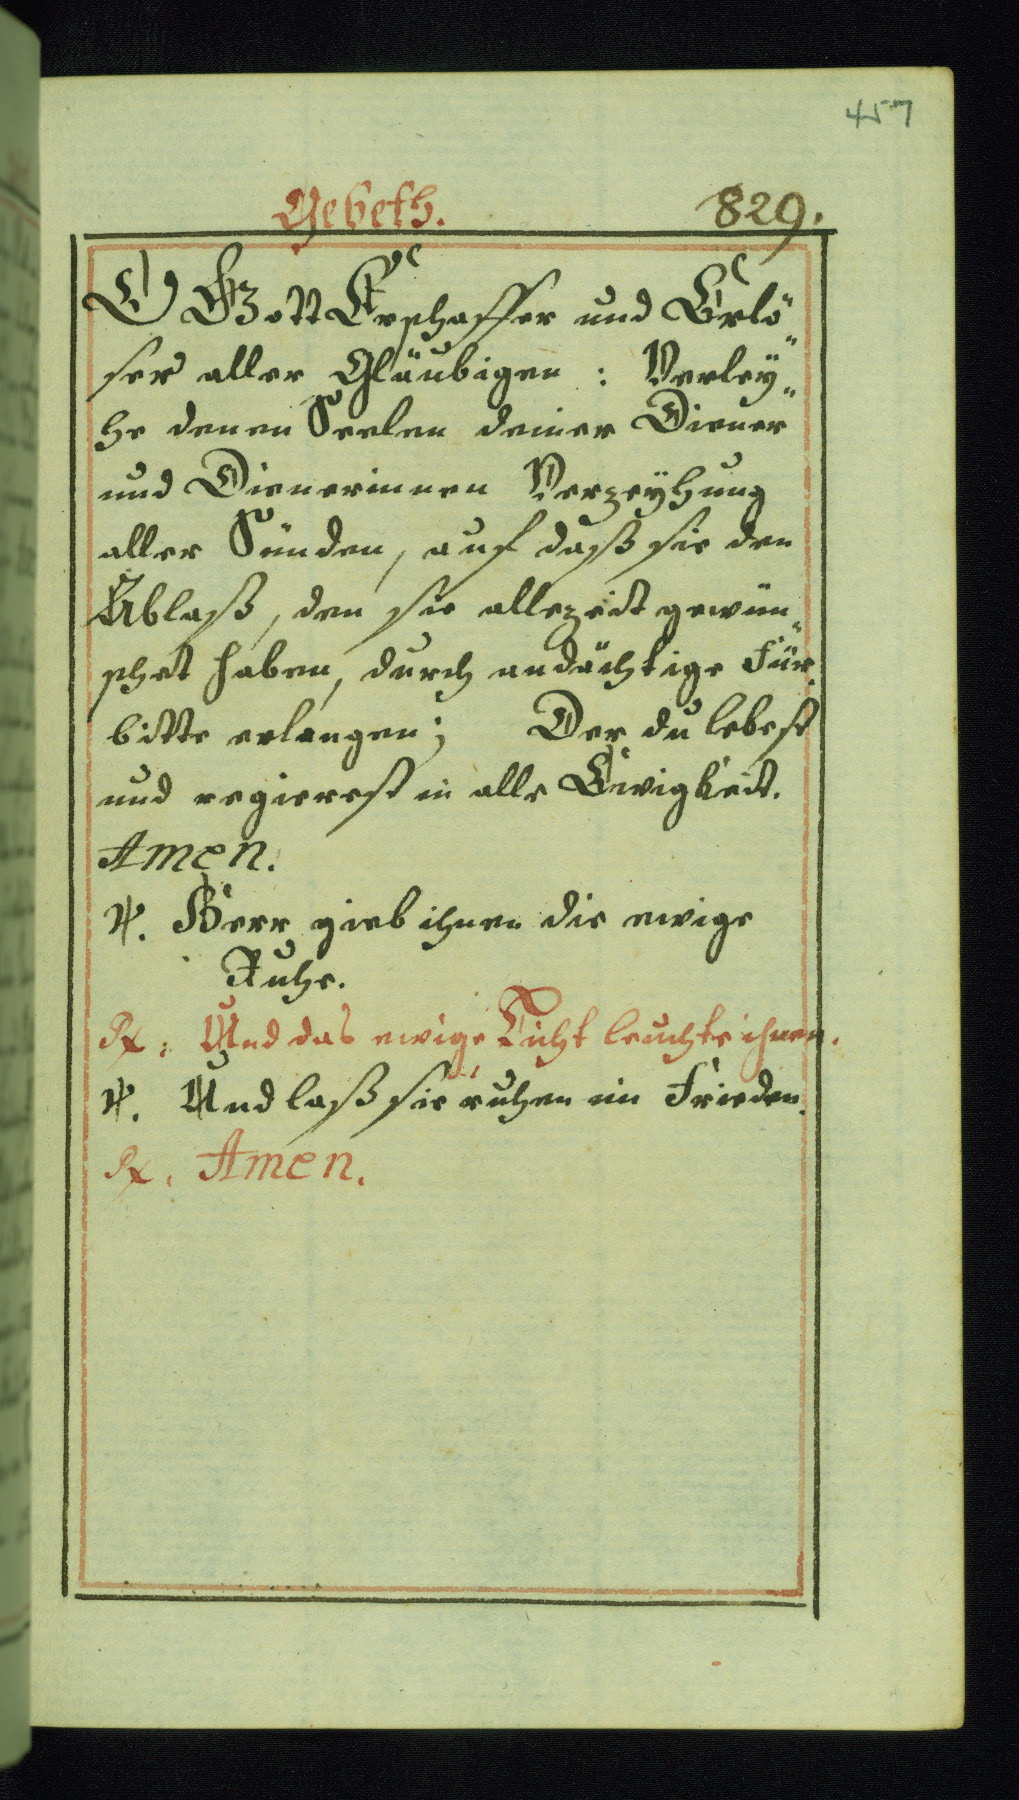 457
Gebeth. 829.
O Gott Erschaffer und Erlö„
ser aller Gläubigen: Verley„
he denen Seelen deiner Diener
und Dienerinnen Verzeyhung
aller Sünden, auf daß sie den
Ablaß, den sie allezeit gewün„
schet haben, durch andächtige Für„
bitte erlangen; Der du lebest
und regierest in alle Ewigkeit.
Amen.
℣. Herr gieb ihnen die ewige
Ruhe.
℟. Und das ewige Licht leuchte ihnen.
℣. Und laß sie ruhen im Frieden.
℟. Amen.